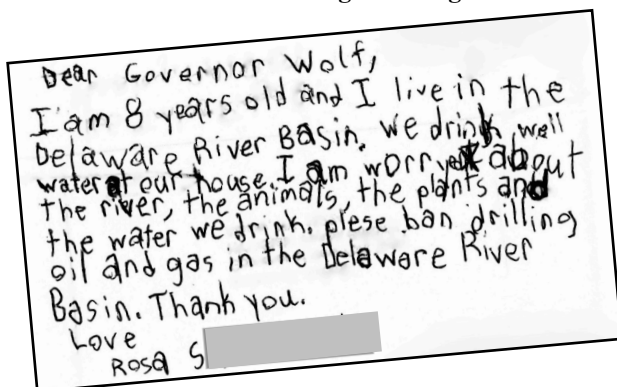 Dear Governor Wolf,
I am 8 years old and I live in the
Delaware River Basin. We drink well
water at our house. I am worryed about
the river, the animals, the plants and
the water we drink. plese ban drilling
oil and gas in the Delaware River
Basin. Thank you.
Love
Rosa S